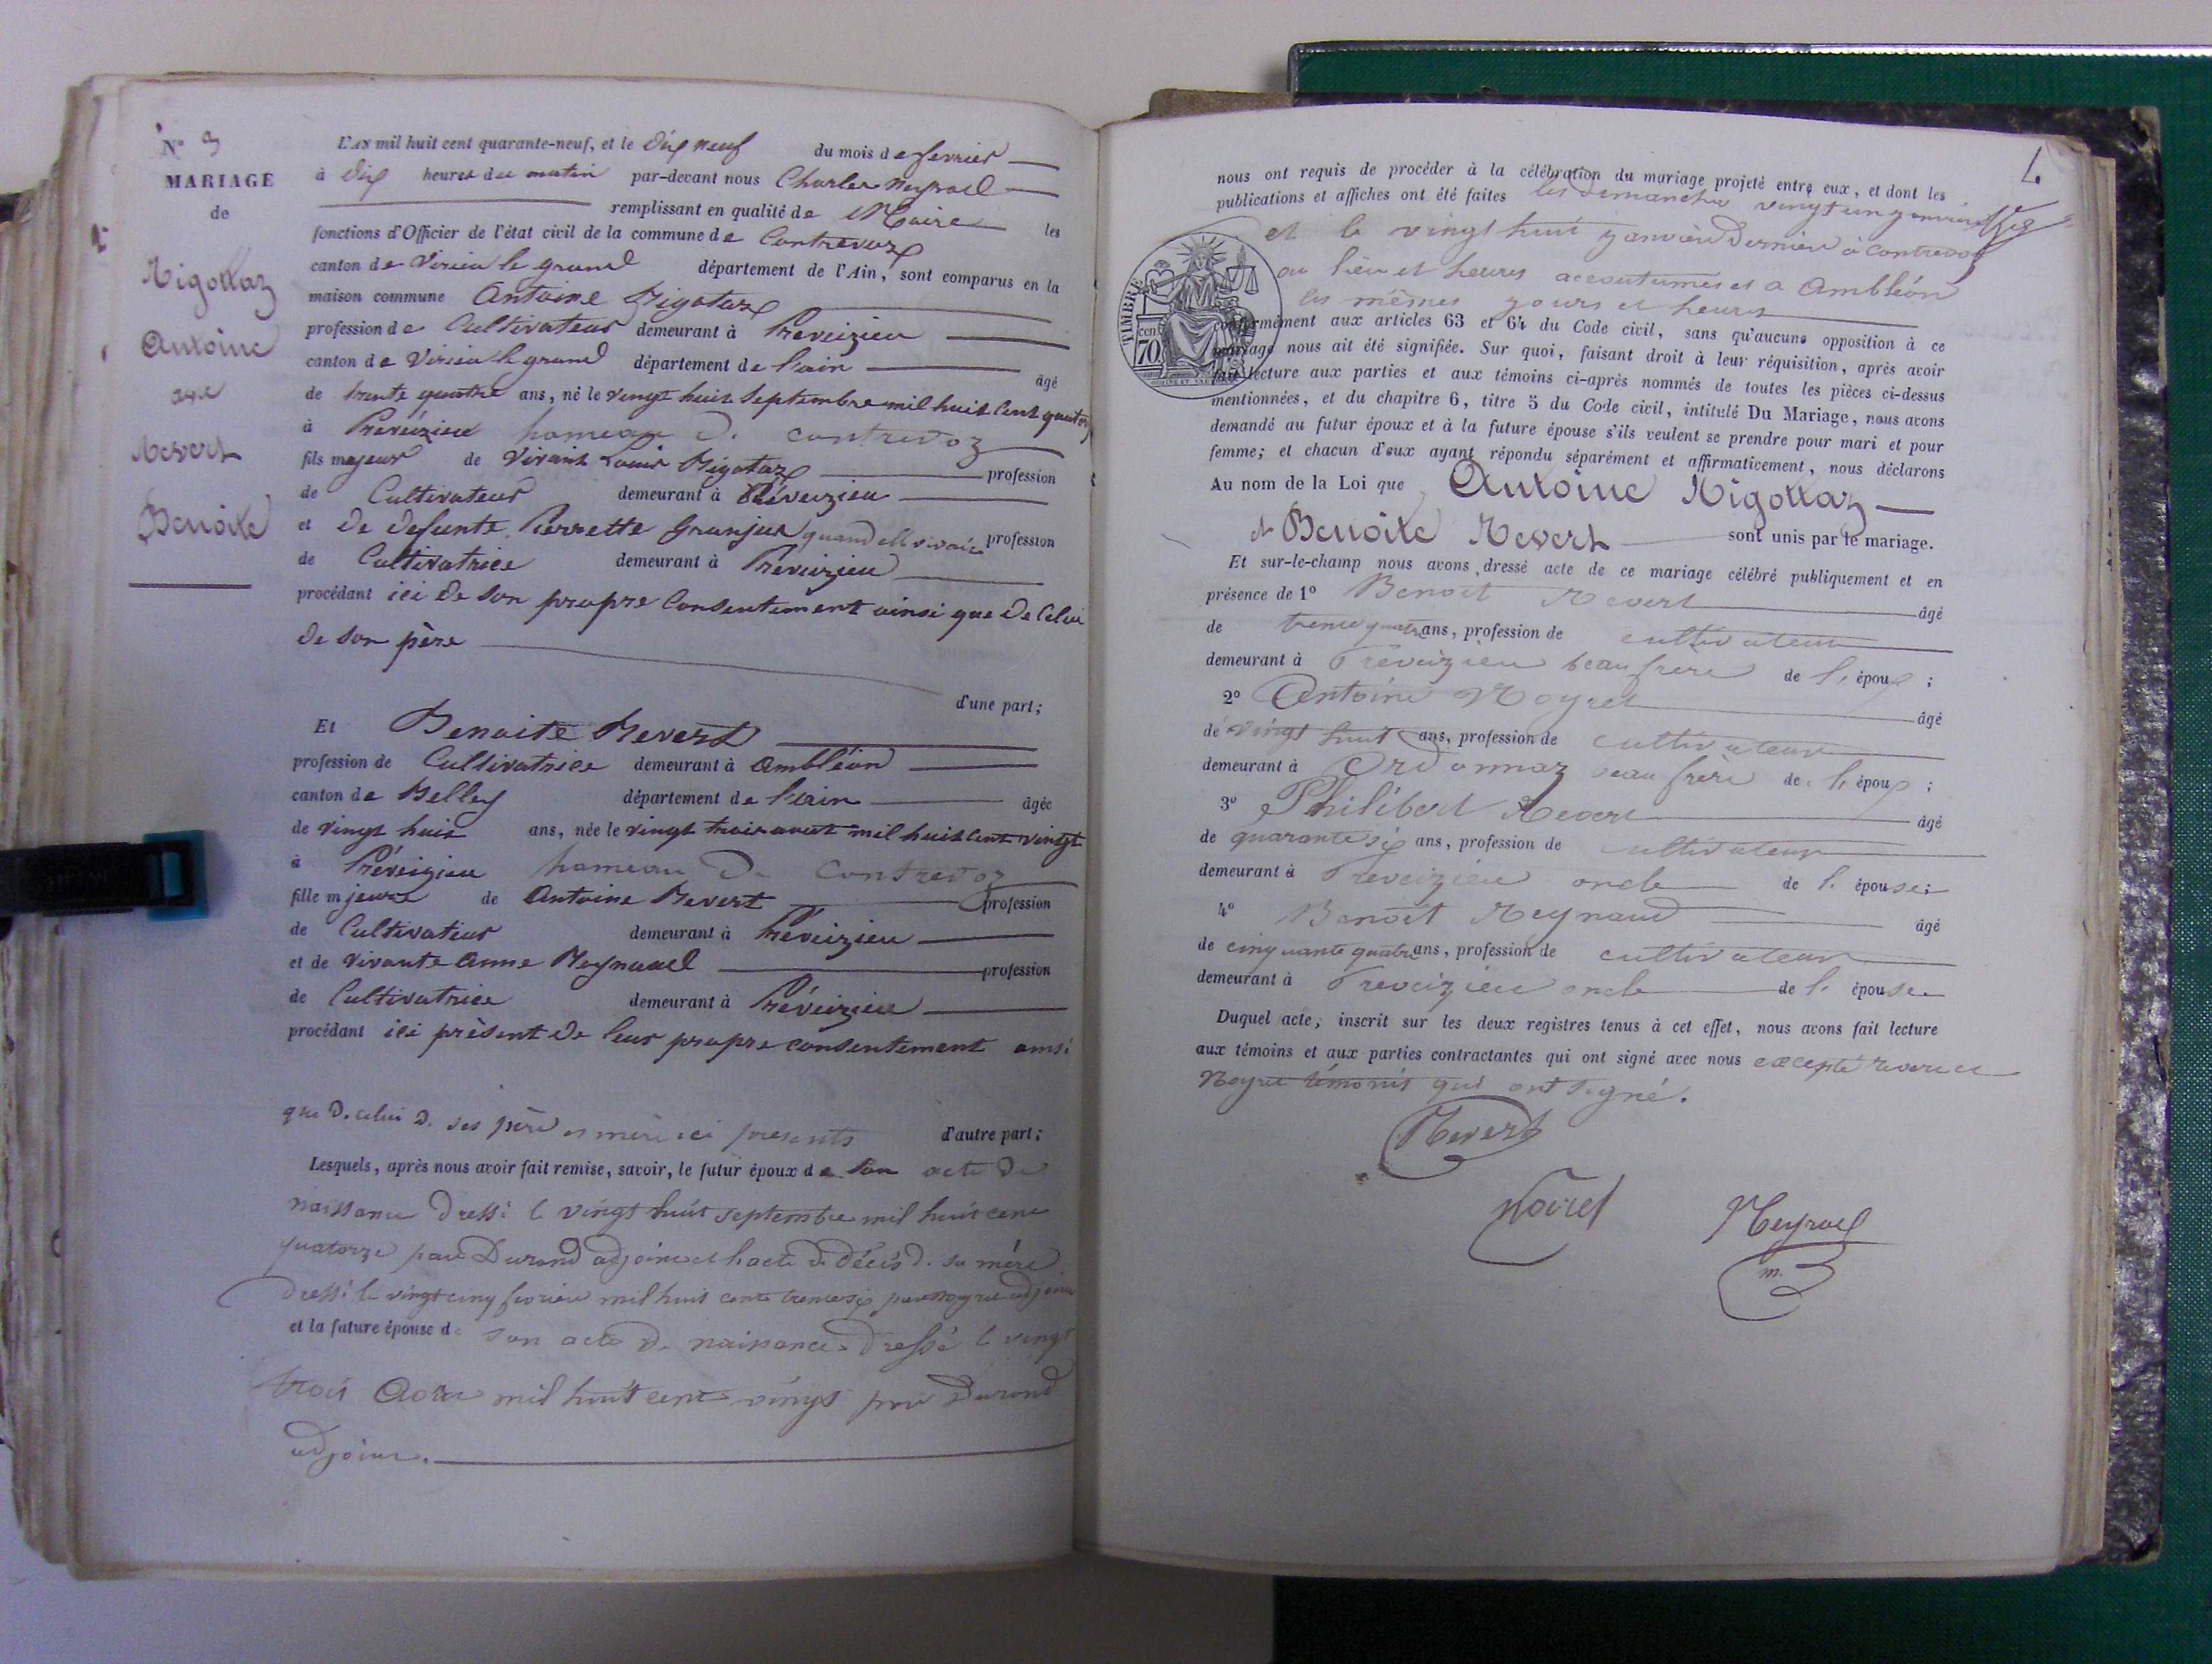 N° 3
MARIAGE
de
Rigottaz
Antoine
avec
Revert
Benoite
L'AN mil huit cent quarante-neuf, et le dix neuf du mois de fevrier
à dix heures du matin par-devant nous Charles
remplissant en qualité de Maire les
fonctions d'Officier de l'état civil de la commune de Contrevoz
canton de Virieu le grand département de l'Ain, sont comparus en la
maison commune Antoine Rigotaz
profession de Cultivateur demeurant à Preveizieu
canton de Virieu le grand département de l'ain âgé
de trente quatre ans, né le vingt huit Septembre mil huit Cent quatorze
à Préveizieu hameau de contrevoz
fils majeur de Vivant Louis Rigotaz profession
de Cultivateur demeurant à Préveizieu
et De defunte Pierrette Granjus quand elle vivait profession
de Cultivatrice demeurant à Preveizieu
procédant ici de son propre Consentement ainsi que de Celui
de son père
d'une part;
Et Benoite Revert
profession de Cultivatrice demeurant à Ambléon
canton de Belley département de l'ain âgée
de vingt huit ans, née le vingt trois aout mil huit Cent vingt
à Préveizieu hameau de Contrevoz
fille majeure de Antoine Revert profession
de Cultivateur demeurant à Préveizieu
et de vivante Anne Reynaud profession
de Cultivatrice demeurant à Préveizieu
procédant ici présent de leur propre consentement ainsi
que de celui de ses père et mère ici presents d'autre part;
Lesquels, après nous avoir fait remise, savoir, le futur époux de son acte de
naissance dressé le vingt huit septembre mil huit cent
quatorze par Durand adjoint et l'acte de décés de sa mère
dressé le vingt cinq fevrier mil huit cent trente six par adjoint
et la future épouse de son acte de naissance dressé le vingt
trois Aout mil huit cent vingt par Durand
adjoint.
nous ont requis de procéder à la célébration du mariage projeté entre eux, et dont les
publications et affiches ont été faites les Dimanches vingt un janvier
et le vingt huit janvier dernier à contrevoz
au lieu et heures accoutumés et a Ambléon
les mêmes jours et heures
TIMBRE
cent
70
conformément aux articles 63 et 64 du Code civil, sans qu'aucune opposition à ce
mariage nous ait été signifiée. Sur quoi, faisant droit à leur réquisition, après avoir
fait lecture aux parties et aux témoins ci-après nommés de toutes les pièces ci-dessus
mentionnées, et du chapitre 6, titre 5 du Code civil, intitulé Du Mariage, nous avons
demandé au futur époux et à la future épouse s'ils veulent se prendre pour mari et pour
femme; et chacun d'eux ayant répondu séparément et affirmativement, nous déclarons
Au nom de la Loi que Antoine Rigottaz
et Benoite Revert sont unis par le mariage.
Et sur-le-champ nous avons dressé acte de ce mariage célébré publiquement et en
présence de 1° Benoit Revert âgé
de trente quatre ans, profession de cultivateur
demeurant à Préveizieu beau frere de l' époux ;
2° Antoine Noyret âgé
de vingt huit ans, profession de cultivateur
demeurant à Ordonnaz beau frère de l' époux ;
3° Philibert Revert âgé
de quarante six ans, profession de cultivateur
demeurant à Preveizieu oncle de l' épouse;
4° Benoit Reynaud âgé
de cinquante quatre ans, profession de cultivateur
demeurant à Preveizieu oncle de l' épouse
Duquel acte, inscrit sur les deux registres tenus à cet effet, nous avons fait lecture
aux témoins et aux parties contractantes qui ont signé avec nous excepté revert et
Noyret témoins qui ont signé.
Revert
Noiret